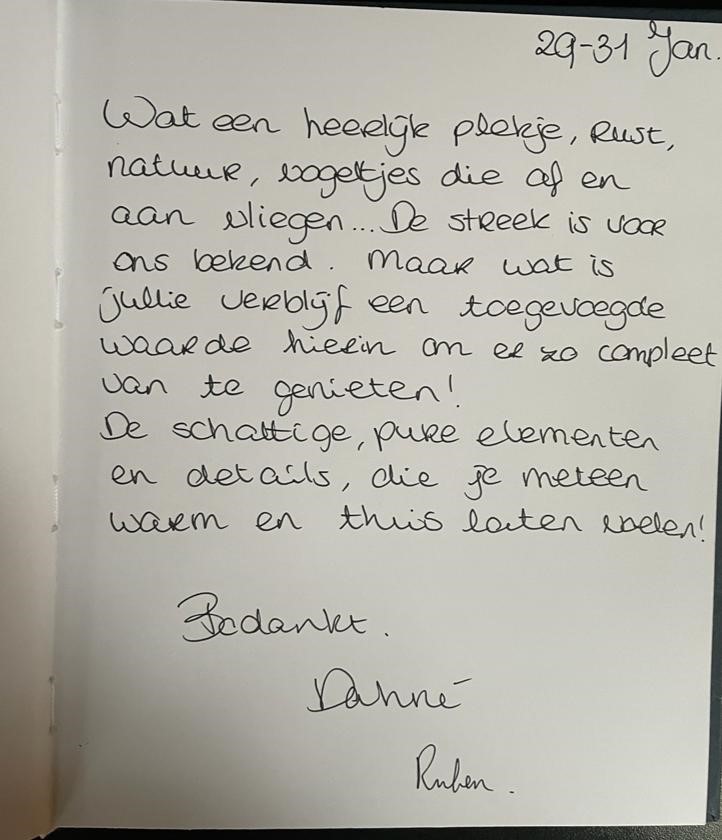 29-31 Jan.
Wat een heerlijk plekje, rust,
natuur, vogeltjes die af en
aan vliegen... De streek is voor
ons bekend. Maar wat is
jullie verblijf een toegevoegde
waarde hierin om er zo compleet
van te genieten!
De schattige, pure elementen
en details, die je meteen
warm en thuis laten voelen!
Bedankt.
Ruben.